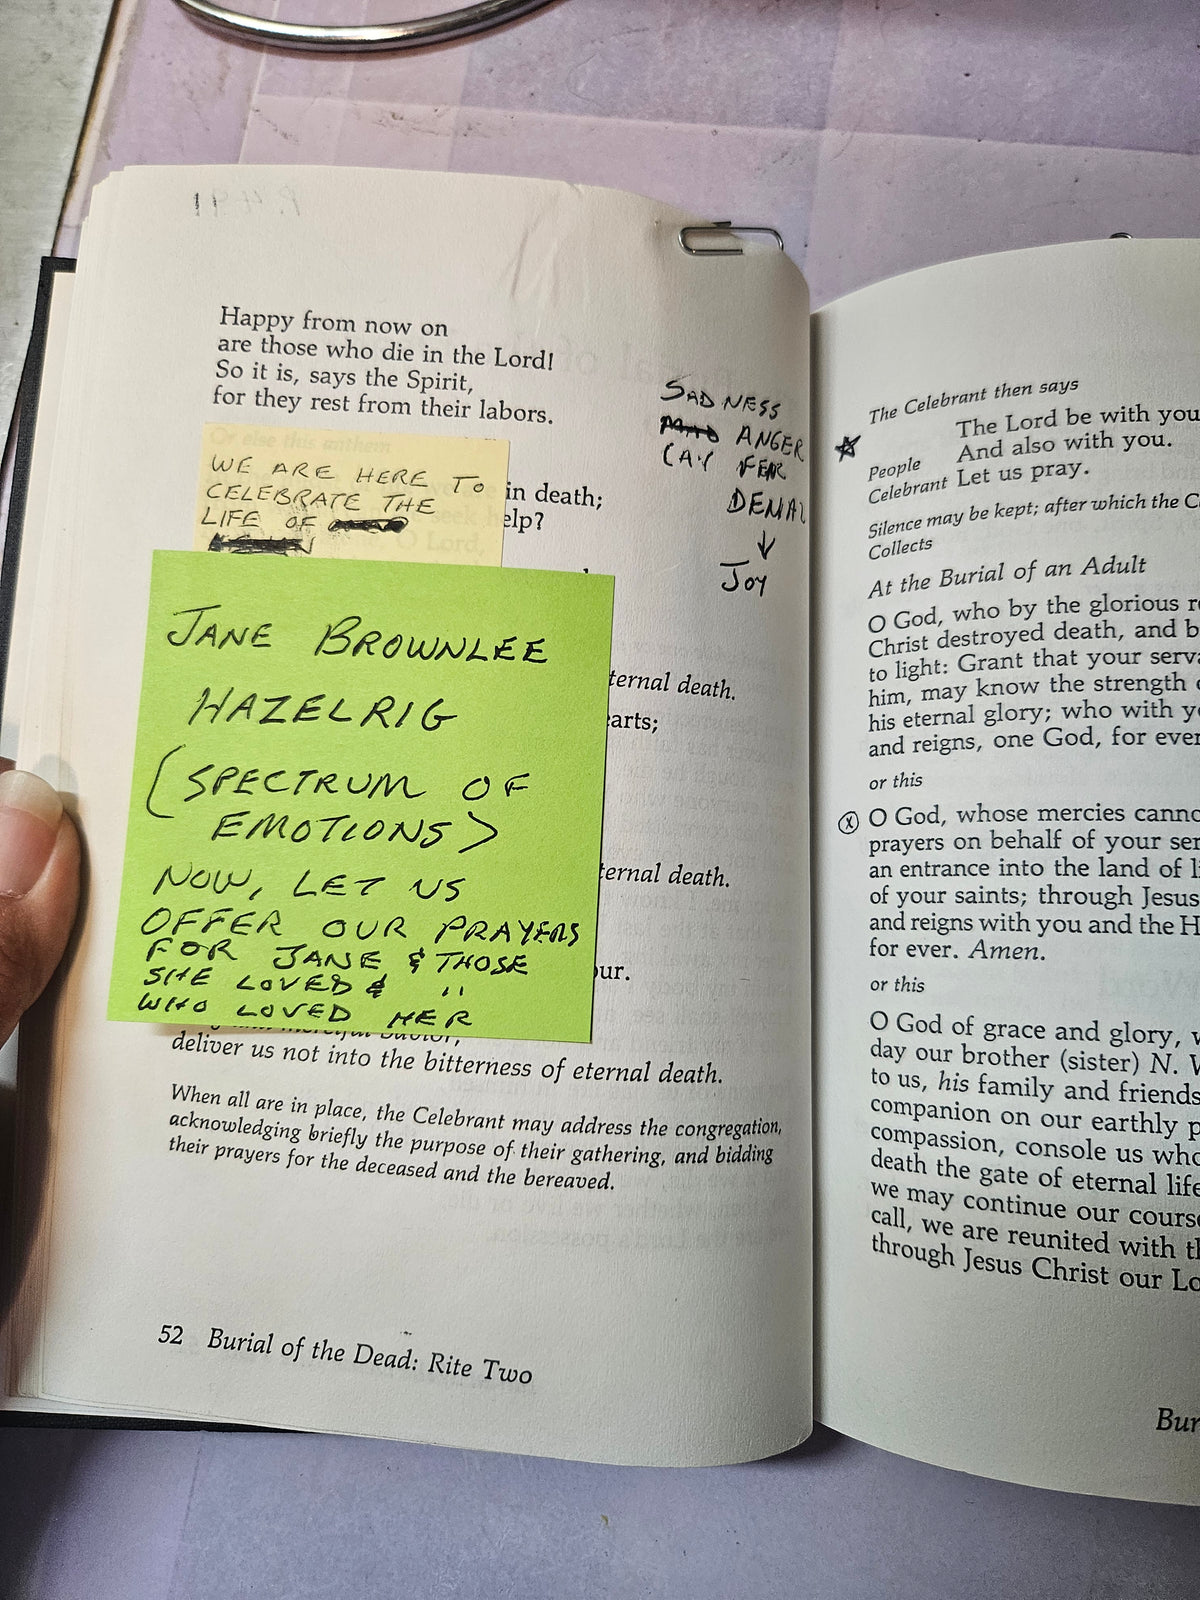 Happy from now on
are those who die in the Lord!
So it is, says the Spirit,
for they rest from their labors.
Or else this anthem
WE ARE HERE TO
CELEBRATE THE
LIFE OF
in death;
elp?
JANE BROWNLEE
HAZELRIG
(SPECTRUM OF
EMOTIONS)
NOW, LET US
OFFER OUR PRAYERS
FOR JANE & THOSE
SHE LOVED & "
WHO LOVED HER
ternal death.
earts;
ternal death.
our.
deliver us not into the bitterness of eternal death.
When all are in place, the Celebrant may address the congregation,
acknowledging briefly the purpose of their gathering, and bidding
their prayers for the deceased and the bereaved.
52 Burial of the Dead: Rite Two
SADNESS
ANGER
FEAR
DENIAL
↓
JOY
The Celebrant then says
The Lord be with you
People And also with you.
Celebrant Let us pray.
Silence may be kept; after which the C
Collects
At the Burial of an Adult
O God, who by the glorious re
Christ destroyed death, and b
to light: Grant that your serva
him, may know the strength o
his eternal glory; who with yo
and reigns, one God, for ever
or this
O God, whose mercies canno
prayers on behalf of your ser
an entrance into the land of li
of your saints; through Jesus
and reigns with you and the H
for ever. Amen.
or this
O God of grace and glory, w
day our brother (sister) N. W
to us, his family and friends
companion on our earthly p
compassion, console us who
death the gate of eternal life
we may continue our course
call, we are reunited with th
through Jesus Christ our Lo
Bur